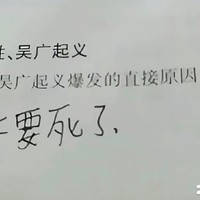 、吴广起义
吴广起义爆发的直接原因
要死了.